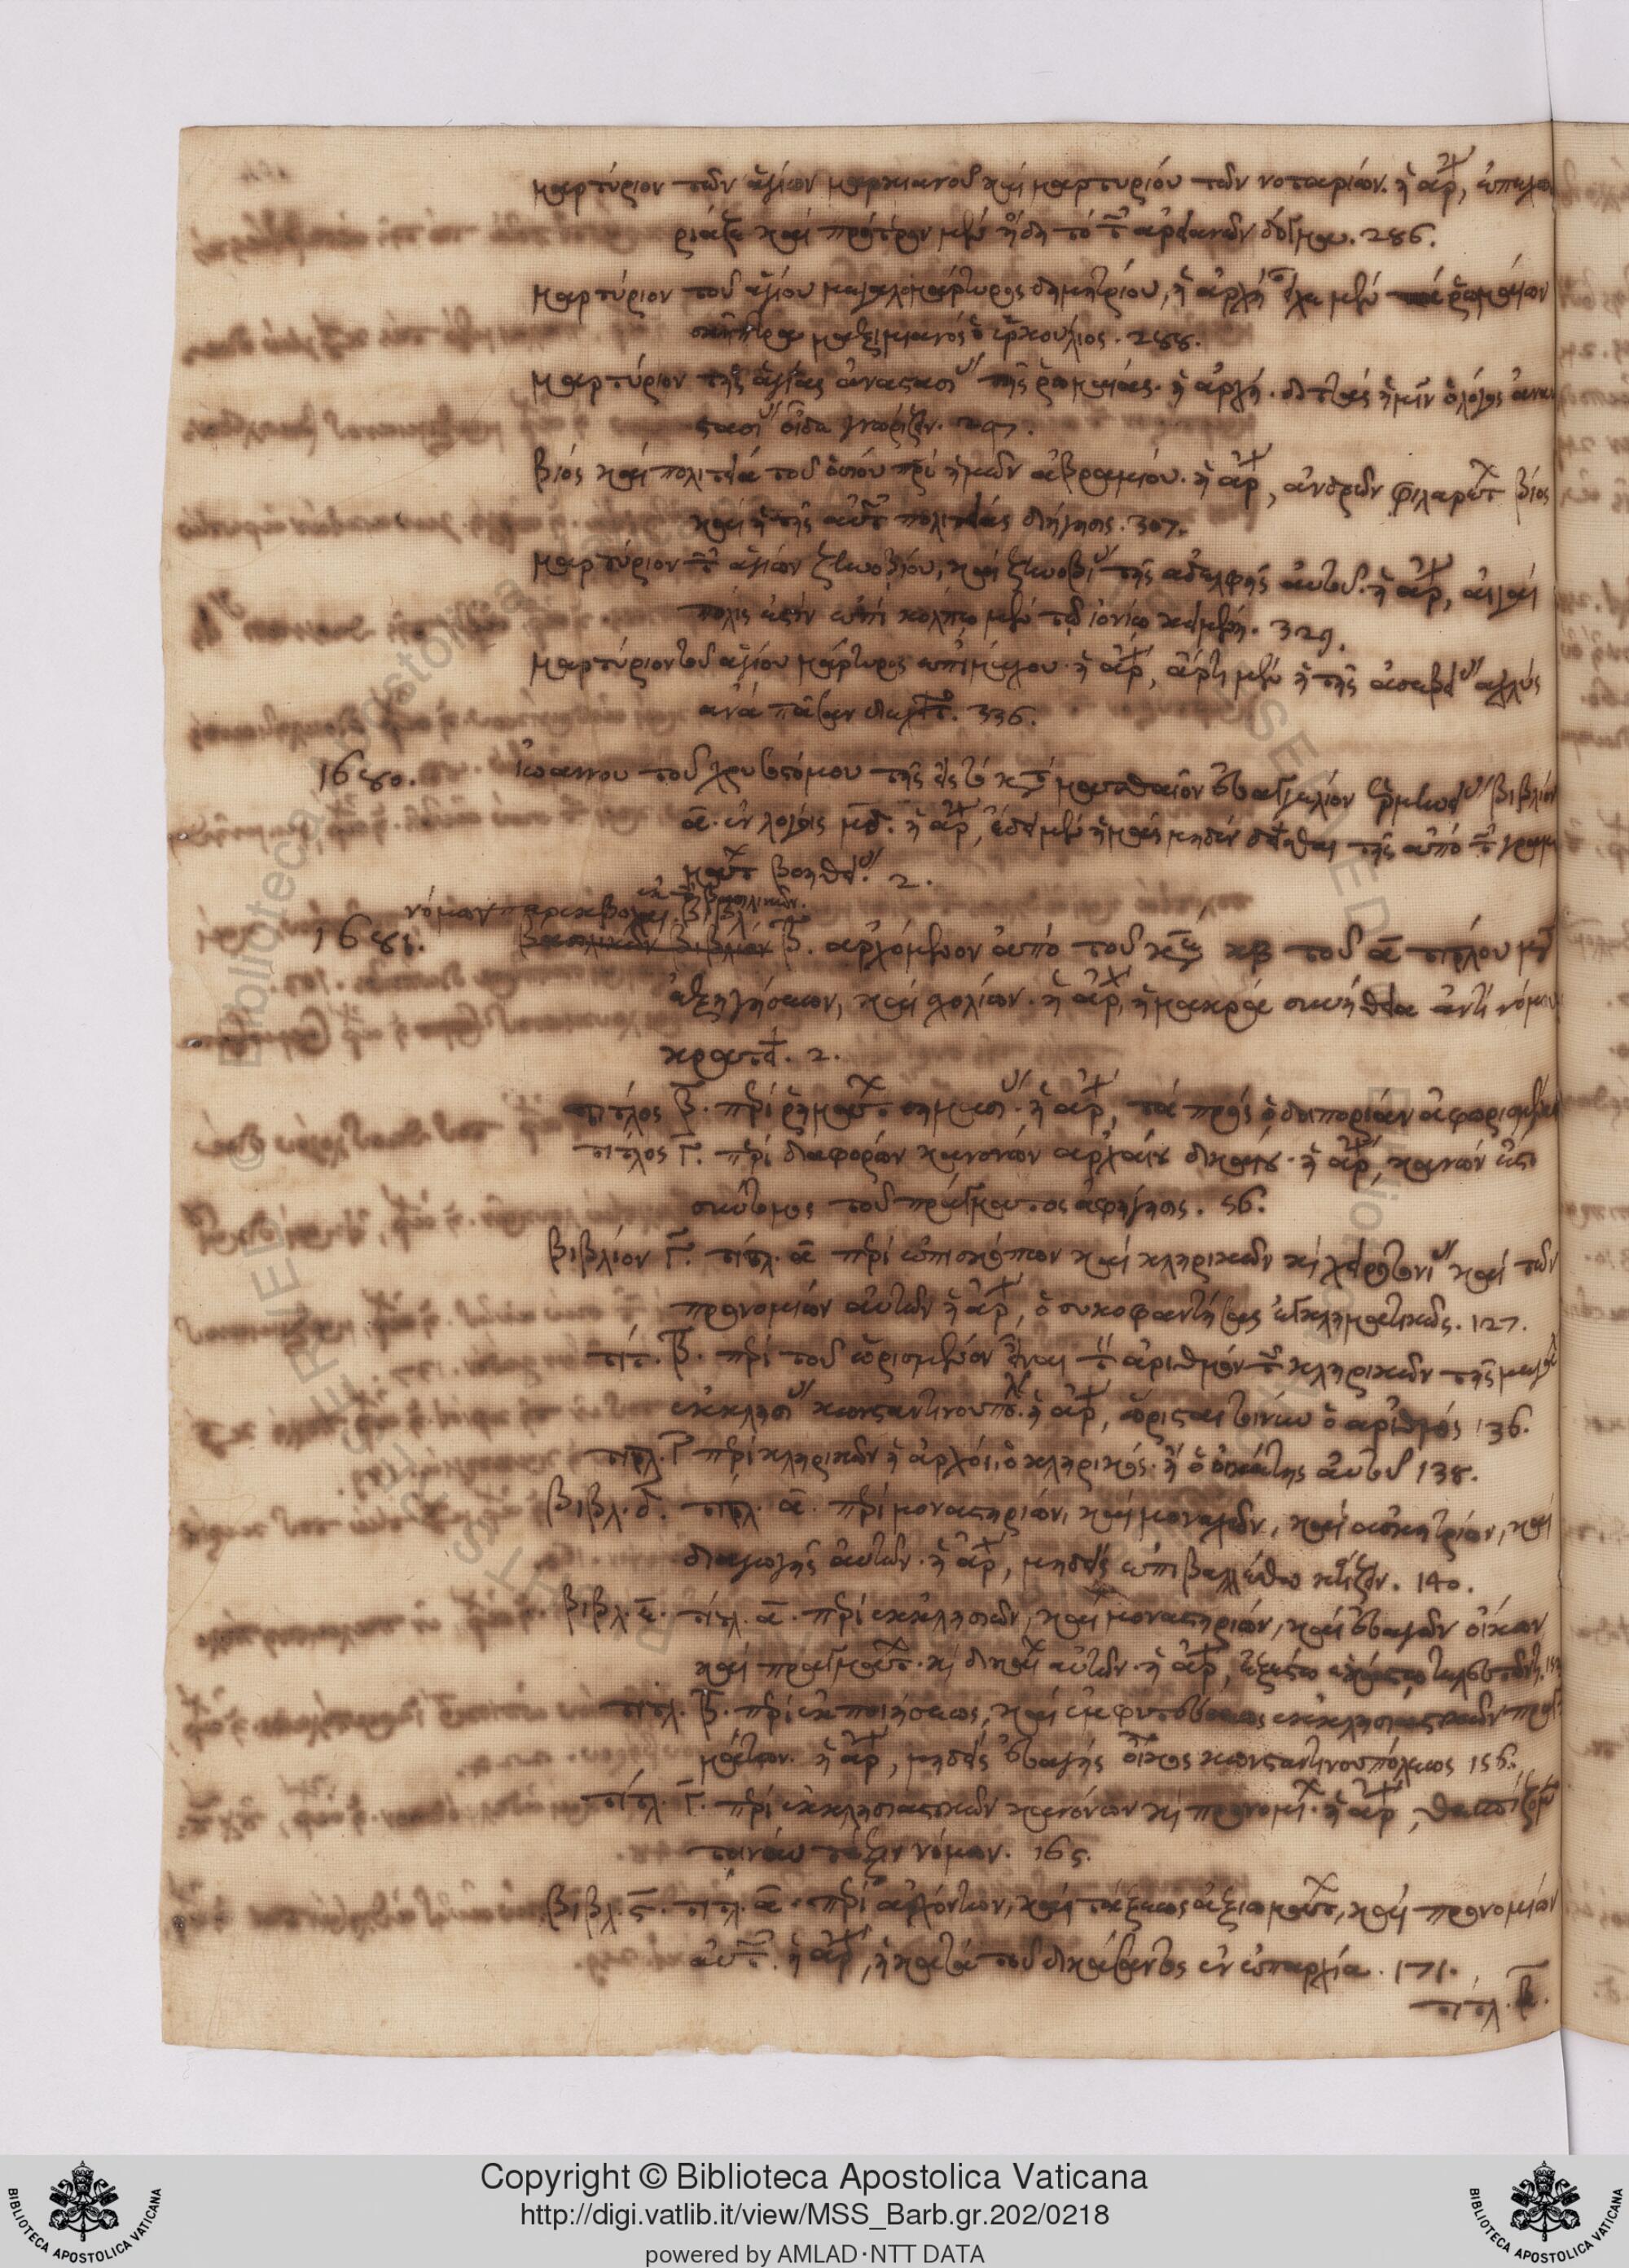 μαρτύριον τῶν ἁγίων μαρκιανοῦ καὶ μαρτυρίου τῶν νοταρίων. ἡ ἀρχ,
καὶ πρότερον μὲν ἤδη τὸ τ ἀρειανῶν δόγμα. 286.
μαρτύριον τοῦ ἁγίου μεγαλομάρτυρος δημητρίου, ἡ ἀρχή εἶχε μὲν ῥωμαίων
σκῆπτρα μαξιμιανὸς ὁ ἑρκούλιος. 288.
μαρτύριον τῆς ἁγίας ἀναστασι τῆς ῥωμαίας. ἡ ἀρχή. διττὰς ἡμῖν ὁ λόγος ἀνα
στασι οἶδε γνωρίζειν. 297.
βίος καὶ πολιτεία τοῦ ὁσίου πρς ἡμῶν ἀβραμίου. ἡ ἀρχ, ἀνδρῶν φιλαρέτ βίος
καὶ ἡ τῆς αὐτ πολιτείας διήγησις. 307.
μαρτύριον τ ἁγίων ζηνοβίου, καὶ ζηνοβι τῆς ἀδελφῆς αὐτοῦ. ἡ ἀρχ, αἰγαὶ
πόλις ἐστὶν ἐπὶ κόλπῳ μὲν τῷ ἰονίῳ κειμένη. 329.
μαρτύριον τοῦ ἁγίου μάρτυρος ἐπιμάχου. ἡ ἀρχ, ἄρτι μὲν ἡ τῆς ἀσεβεί ἀχλὺς
ἀνὰ πᾶσαν 336.
1680. ἰωάννου τοῦ χρυσοστόμου τῆς εἰς τὸ κτ ματθαῖον εὐαγγέλιον ἑρμηνεί βιβλίον
α. ἐν λόγοις μδ. ἡ ἀρχ, ἔδει μὲν ἡμᾶς μηδὲν δεῖσθαι τῆς ἀπὸ τ γραμ
μάτ βοηθεί. 2.
νόμων παρεκβολαί. βιβλ. ἐκ τ βασιλικῶν.
1681. βασιλικῶν βιβλίον β. ἀρχόμενον ἀπὸ τοῦ κεφ κβ τοῦ α τίτλου μτ
ἐξηγήσεων, καὶ σχολίων. ἡ ἀρχ, ἡ μακρὰ συνήθεια ἀντὶ νόμου
κρατεῖ. 2.
τίτλος β. πρὶ ῥημάτ. σημασι. ἡ ἀρχ, τὰ πρὸς ὁδοιπορίαν ἀφωρισμένα
τίτλος γ. πρὶ διαφορῶν κανόνων ἀρχαίου δικαίου. ἡ ἀρχ, κανών ἐστι
σύντομος τοῦ πράγματος ἀφήγησις. 56.
βιβλίον γ. τίτλ. α πρὶ ἐπισκόπων καὶ κληρικῶν κὶ χειροτονι καὶ τῶν
προνομίων αὐτῶν ἡ ἀρχ, ὁ συκοφαντήσας ἐγκληματικῶς. 127.
τίτ. β. πρὶ τοῦ ὡρισμένον εἶναι τ ἀριθμὸν τ κληρικῶν τῆς μεγάλ
ἐκκλησι κωνσταντινουπολ. ἡ ἀρχ, ὥρισται τοίνυν ὁ ἀριθμὸς 136.
τίτλ. γ πρὶ κληρικῶν ἡ ἀρχ, ὁ κληρικός. ἢ ὁ οἰκέτης αὐτοῦ 138.
βιβλ. δ. τίτλ. α. πρὶ μοναστηρίων, καὶ μοναχῶν, καὶ ἀσκητρίων, καὶ
διαγωγῆς αὐτῶν. ἡ ἀρχ, μηδεὶς ἐπιβαλλέσθω κτίζειν. 140.
βιβλ. ε. τίτλ. α. πρὶ ἐκκλησιῶν, καὶ μοναστηρίων, καὶ εὐαγῶν οἴκων
καὶ πραγμάτ. κὶ δικαί αὐτῶν. ἡ ἀρχ, ἐξέστω ἑκάστῳ
τίτλ. β. πρὶ ἐκποιήσεως, καὶ ἐμφυτεύσεως ἐκκλησιαστικῶν πραγ
μάτων. ἡ ἀρχ, μηδεὶς εὐαγὴς οἶκος κωνσταντινουπόλεως 156.
τίτλ. γ. πρὶ ἐκκλησιαστικῶν κανόνων κὶ προνομι. ἡ ἀρχ, θεσπίζομεν
τοίνυν τάξιν νόμων. 165.
βιβλ. ς. τίτλ. α. πρὶ ἀρχόντων, καὶ τάξεως ἀξιωμάτ, καὶ προνομίων
αὐτ. ἡ ἀρχ, ἡ κατὰ τοῦ δικάσαντος ἐν ἐπαρχίᾳ. 171.
τίτλ. β.
Copyright © Biblioteca Apostolica Vaticana
http://digi.vatlib.it/view/MSS_Barb.gr.202/0218
powered by AMLAD·NTT DATA
BIBLIOTECA APOSTOLICA VATICANA
BIBLIOTECA APOSTOLICA VATICANA